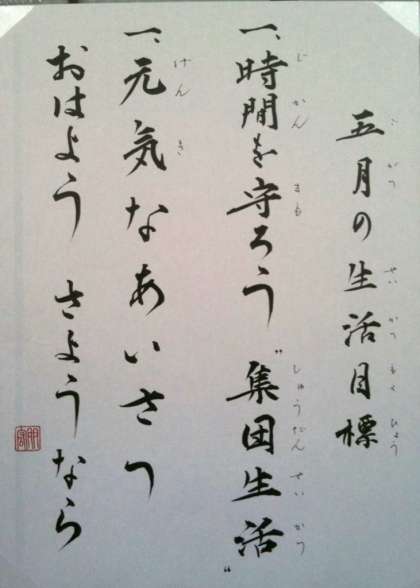 五月の生活目標
ごがつ せいかつもくひょう
一、時間を守ろう〝集団生活〟
じかん まも しゅうだんせいかつ
一、元気なあいさつ
げんき
おはよう さようなら